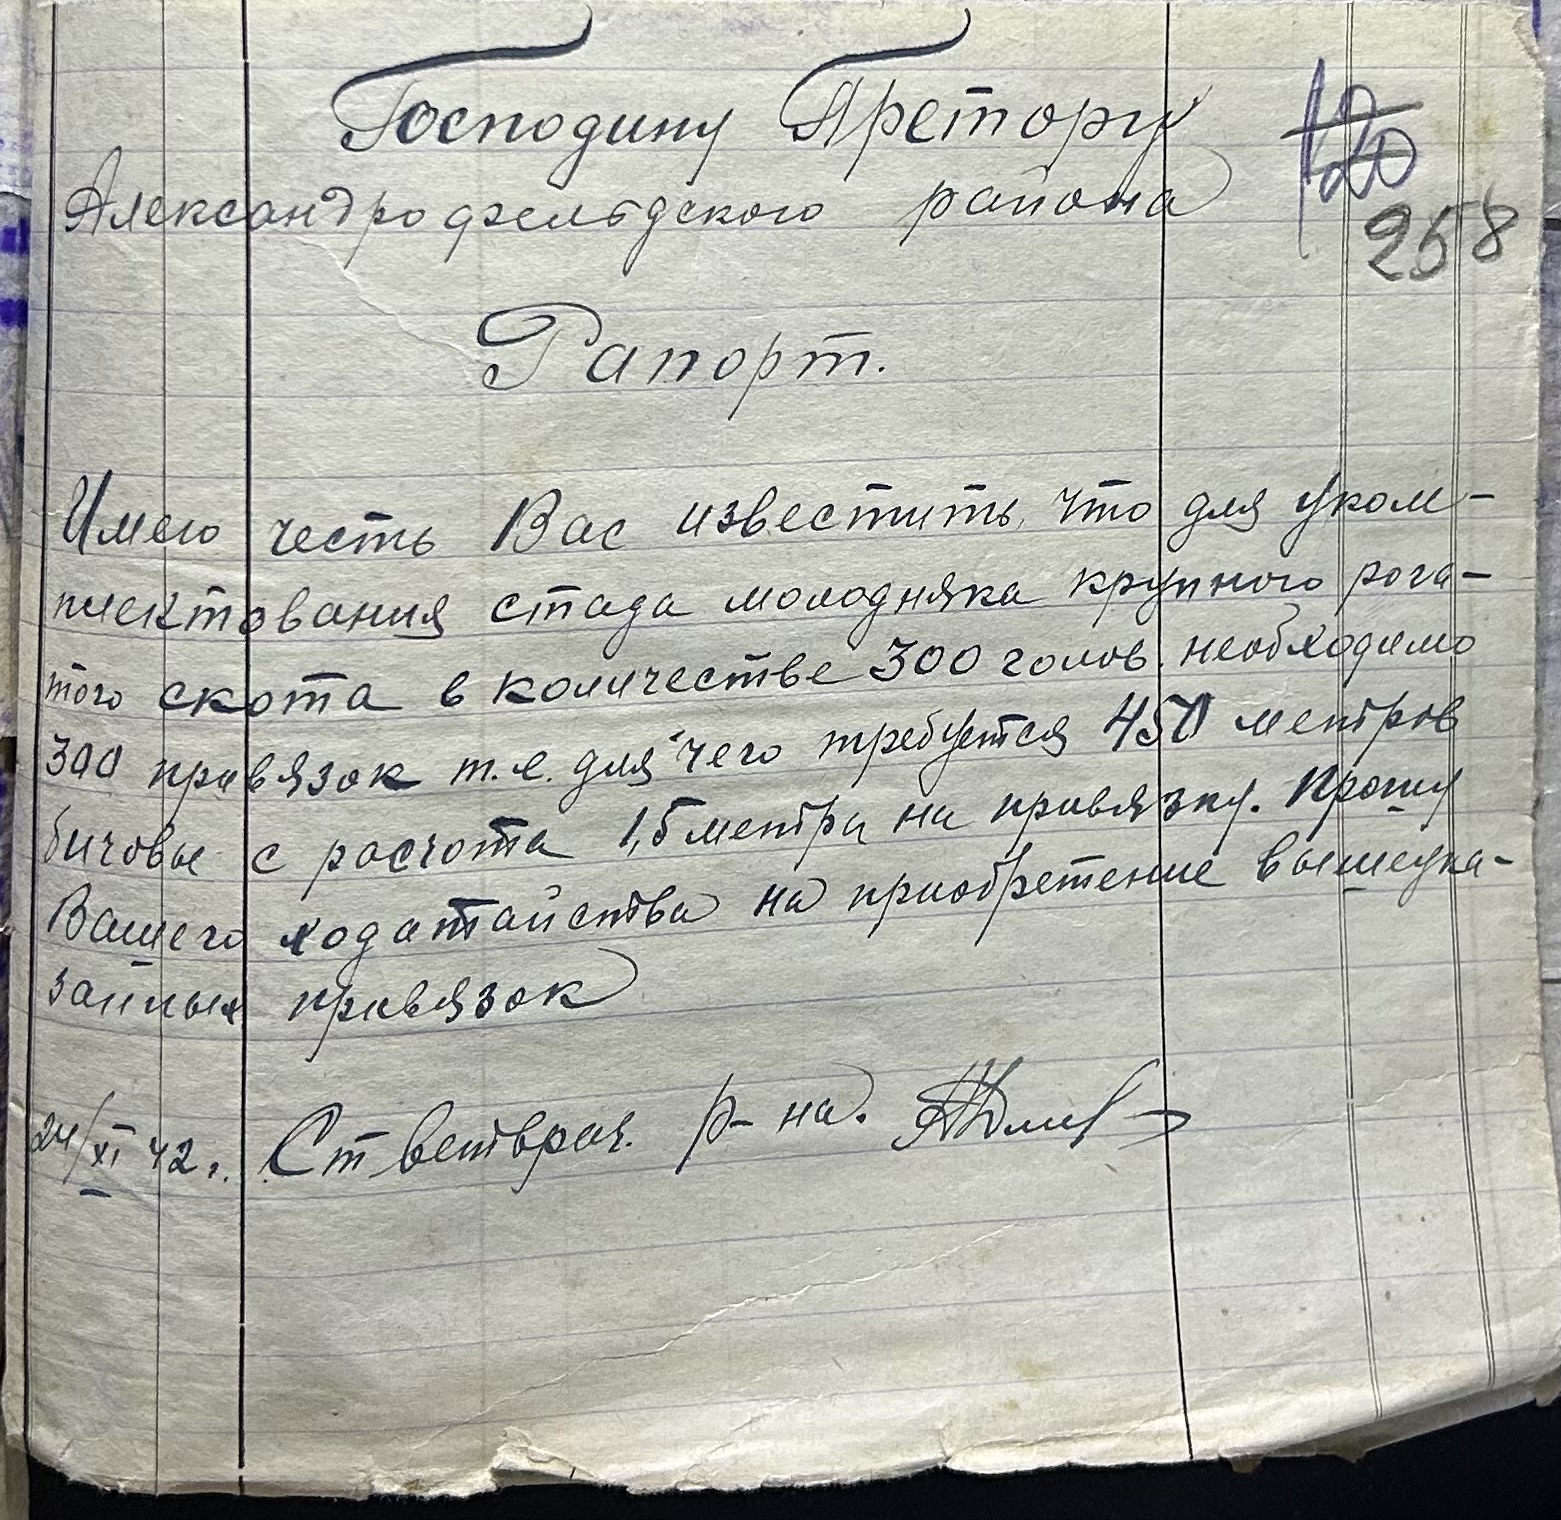 Господину Претору
120
Александрофельдского района
258
Рапорт.
Имею честь Вас известить, что для уком-
плектования стада молодняка крупного рога-
того скота в количестве 300 голов. необходимо
300 привязок т.е. для чего требуется 450 метров
бичовы с росчота 1,5 метра на привязку. Прошу
Вашего ходатайства на приобретение вышеука-
занных привязок
24/XI 42 г. Ст ветврач. р-на.